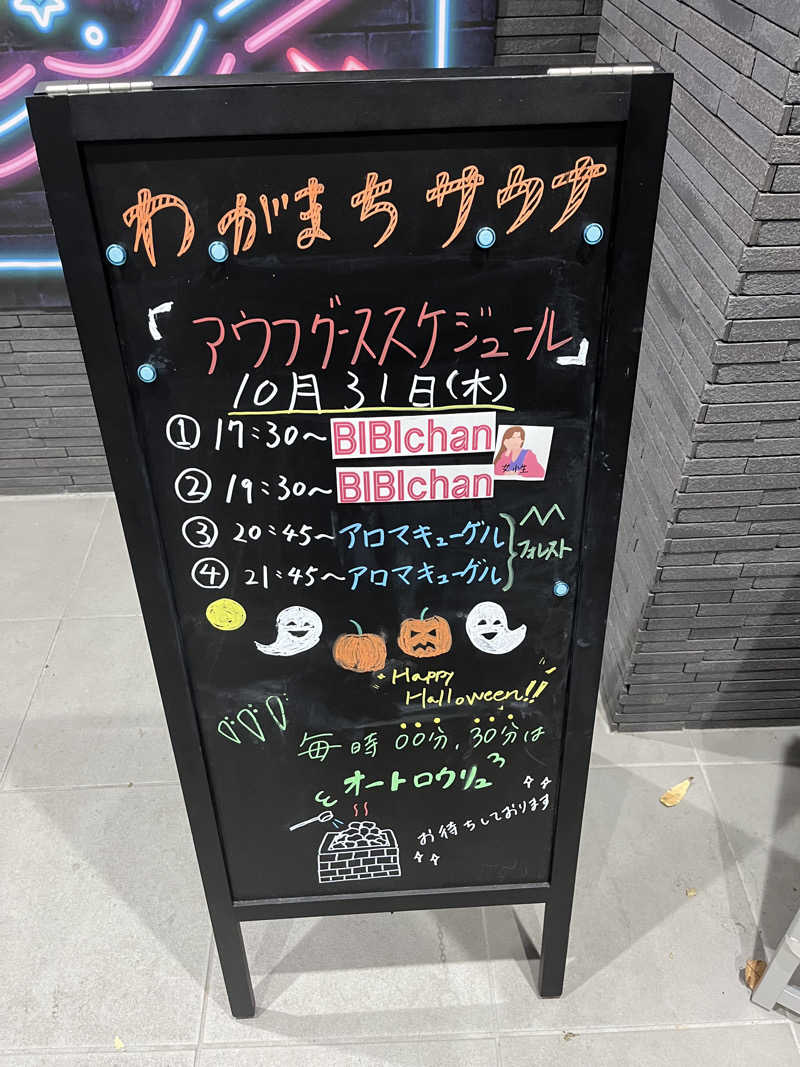 わがまちサウナ
「アウフグーススケジュール」
10月31日(木)
① 17:30〜 BIBIchan
② 19:30〜 BIBIchan
③ 20:45〜アロマキューゲル
④ 21:45〜アロマキューゲル
フォレスト
Happy
Halloween!!
毎時00分、30分は
オートロウリュ
お待ちしております